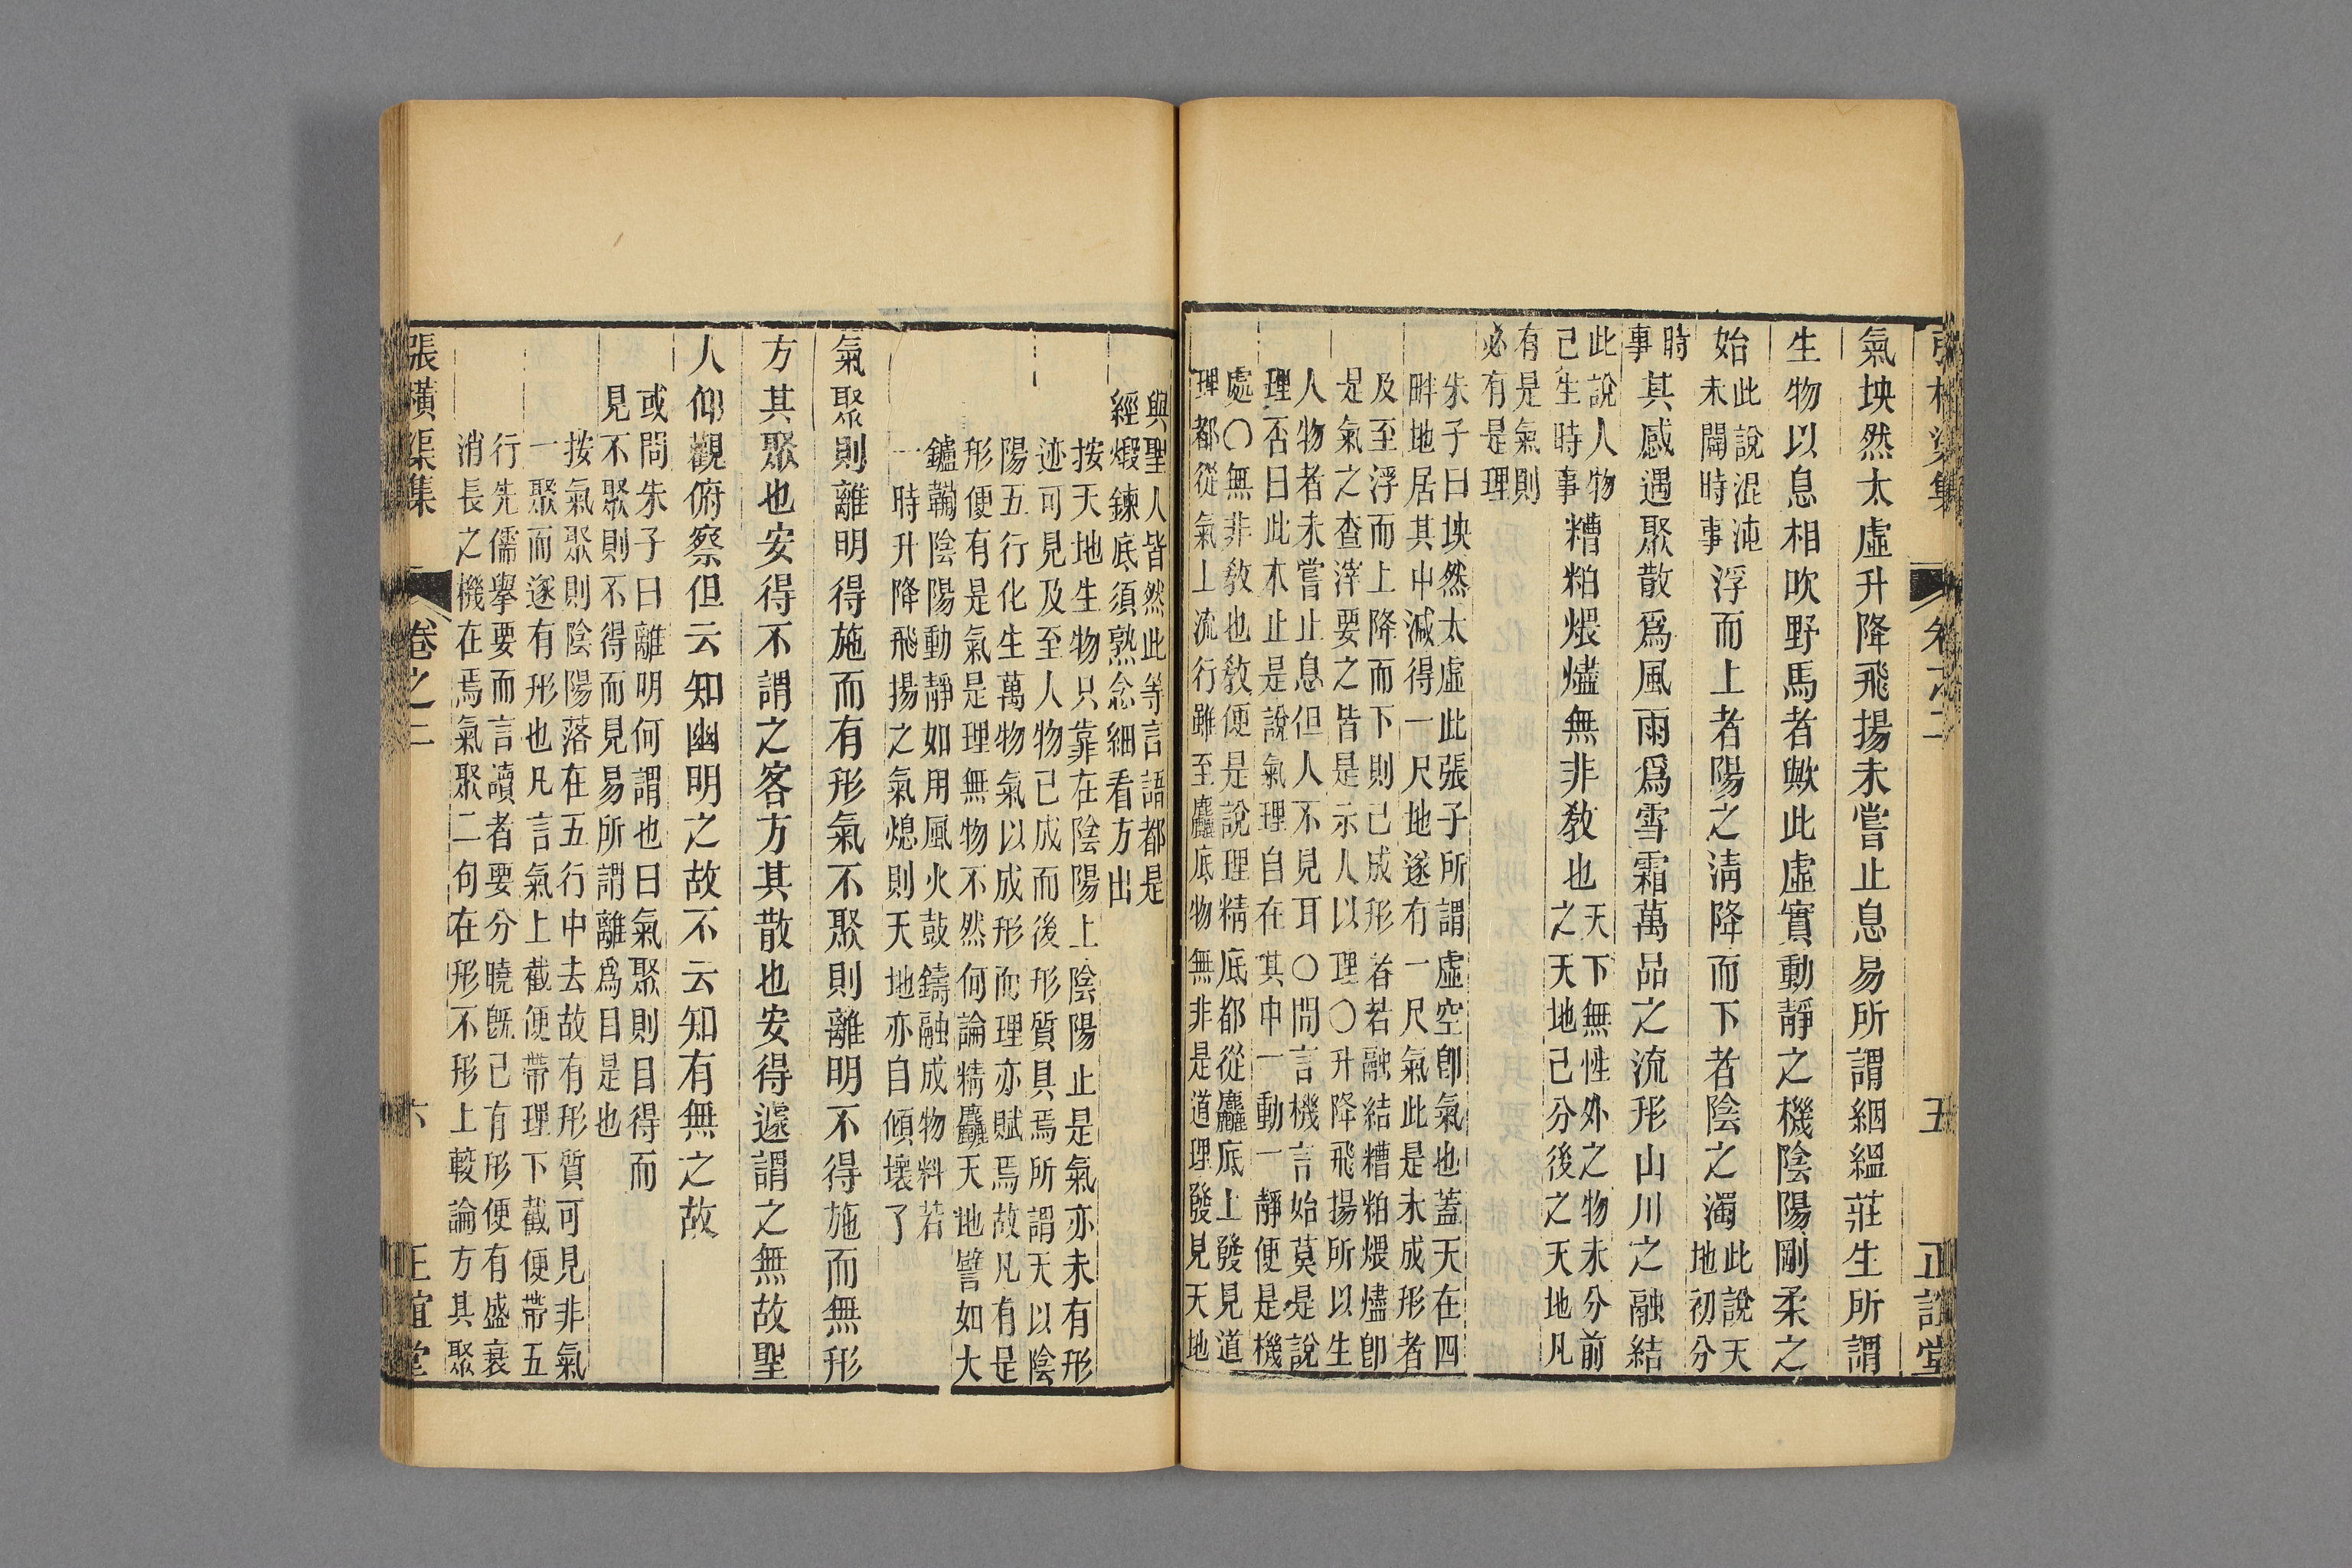 張橫渠集 卷之二 五 正誼堂
氣坱然太虛升降飛揚未嘗止息易所謂絪縕莊生所謂
生物以息相吹野馬者歟此虛實動靜之機陰陽剛柔之
始此說混沌
未闢時事浮而上者陽之淸降而下者陰之濁此說天
地初分
時
事其感遇聚散爲風雨爲雪霜萬品之流形山川之融結
此說人物
已生時事糟粕煨燼無非敎也天下無性外之物未分前
之天地已分後之天地凡
有是氣則
必有是理
朱子曰坱然太虛此張子所謂虛空卽氣也蓋天在四
畔地居其中減得一尺地遂有一尺氣此是未成形者
及至浮而上降而下則已成形者若融結糟粕煨燼卽
是氣之查滓要之皆是示人以理○升降飛揚所以生
人物者未嘗止息但人不見耳○問言機言始莫是說
理否曰此本止是說氣理自在其中一動一靜便是機
處○無非敎也敎便是說理精底都從麤底上發見道
理都從氣上流行雖至麤底物無非是道理發見天地
與聖人皆然此等言語都是
經煅鍊底須熟念細看方出
按天地生物只靠在陰陽上陰陽止是氣亦未有形
迹可見及至人物已成而後形質具焉所謂天以陰
陽五行化生萬物氣以成形而理亦賦焉故凡有是
形便有是氣是理無物不然何論精麤天地譬如大
鑪鞴陰陽動靜如用風火鼓鑄融成物料若
一時升降飛揚之氣熄則天地亦自傾壞了
氣聚則離明得施而有形氣不聚則離明不得施而無形
方其聚也安得不謂之客方其散也安得遽謂之無故聖
人仰觀俯察但云知幽明之故不云知有無之故
或問朱子曰離明何謂也曰氣聚則目得而
見不聚則不得而見易所謂離爲目是也
按氣聚則陰陽落在五行中去故有形質可見非氣
一聚而遂有形也凡言氣上截便帶理下截便帶五
行先儒擧要而言讀者要分曉旣已有形便有盛衰
消長之機在焉氣聚二句在形不形上較論方其聚
張橫渠集 卷之二 六 正誼堂